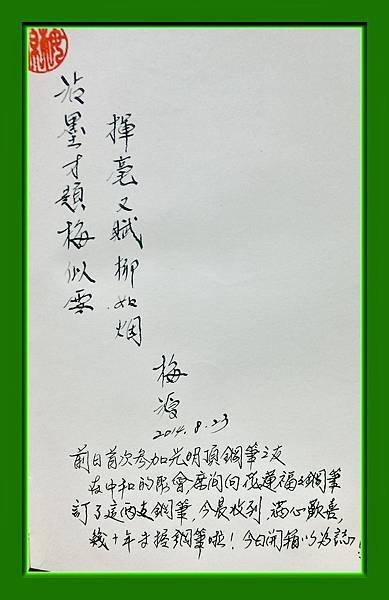 沾墨才題梅似雪
揮毫又賦柳如烟
梅
2014.8.23
前日首次参加光明頂鋼筆之友
在中和的聚會,席间向花蓮福士鋼筆
訂了這两支鋼筆,今晨收到,满心歡喜,
幾十年才握鋼筆啦!今日開箱以為誌!